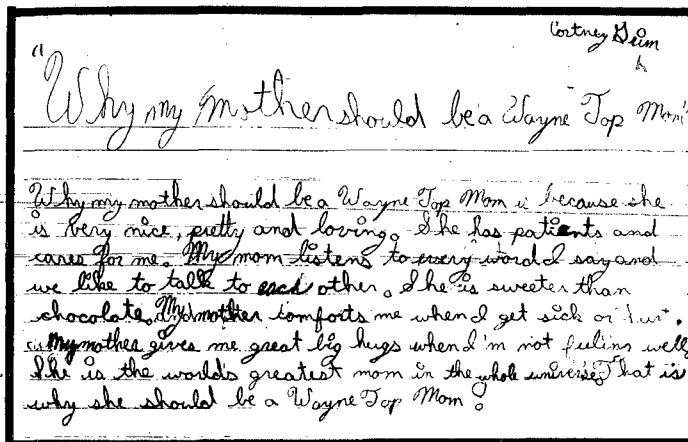 Cortney
"Why my mother should be a Wayne Top Mom"
Why my mother should be a Wayne Top Mom is because she
is very nice, pretty and loving. She has patients and
cares for me. My mom listens to every word I say and
we like to talk to each other. She is sweeter than
chocolate. My mother comforts me when I get sick or hurt.
My mother gives me great big hugs when I'm not feeling well.
She is the world's greatest mom in the whole universe. That is
why she should be a Wayne Top Mom!